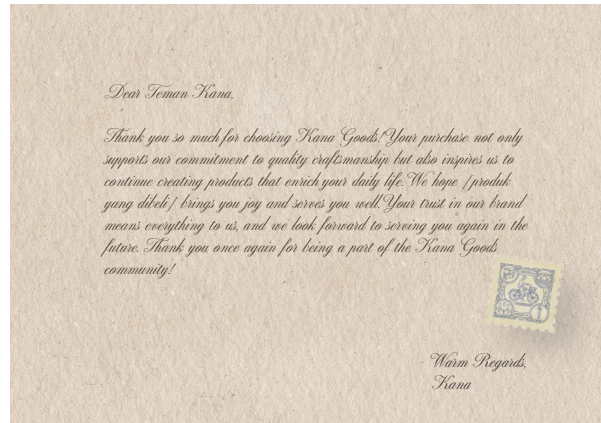 Dear Teman Kana,
Thank you so much for choosing Kana Goods! Your purchase not only
supports our commitment to quality craftsmanship but also inspires us to
continue creating products that enrich your daily life. We hope [produk
yang dibeli] brings you joy and serves you well! Your trust in our brand
means everything to us, and we look forward to serving you again in the
future. Thank you once again for being a part of the Kana Goods
community!
Warm Regards,
Kana